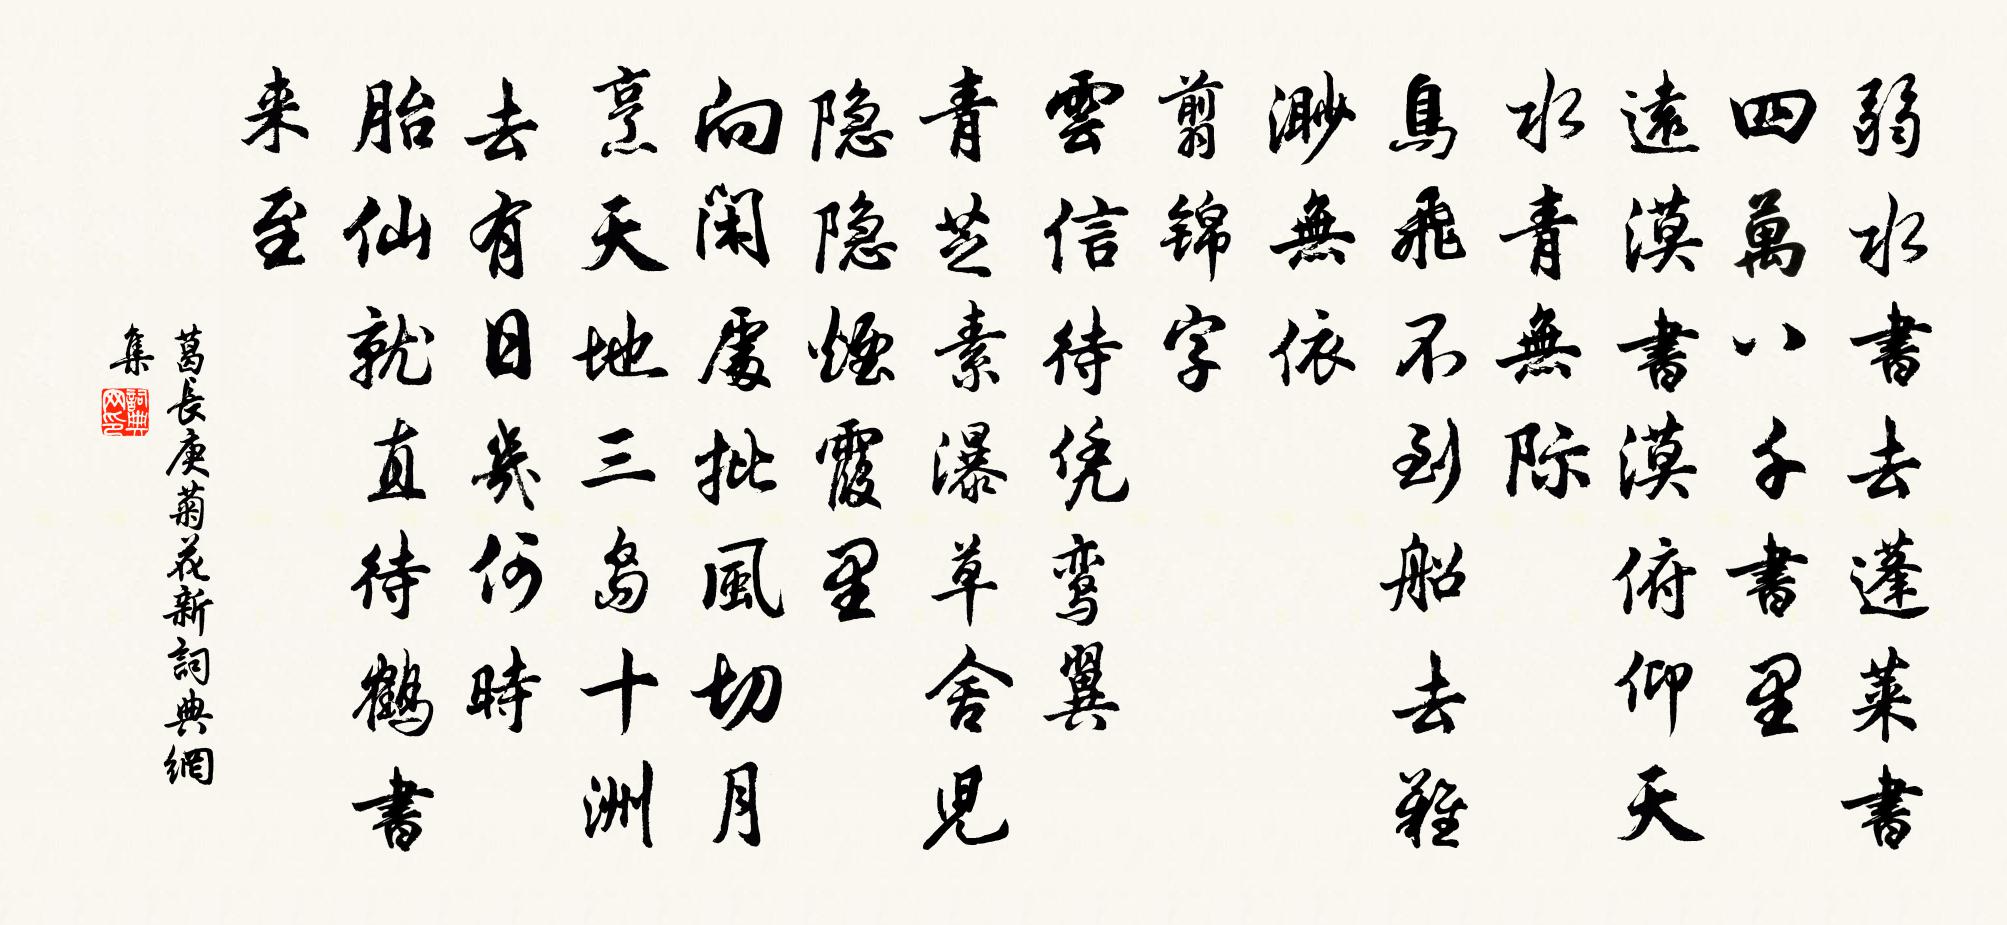 弱水書去蓬莱書
四萬八千書里
遠漠書漠俯仰天
水青無际
鳥飛不到船去難
渺無依
剪锦字
雲信待凭鸾翼
青芝素瀑草舍兒
隐隐煙霞里
向閑處批風切月
烹天地三岛十洲
去有日幾何時
胎仙就直待鶴書
来至
葛長庚菊花新詞典網
集
詞典网印